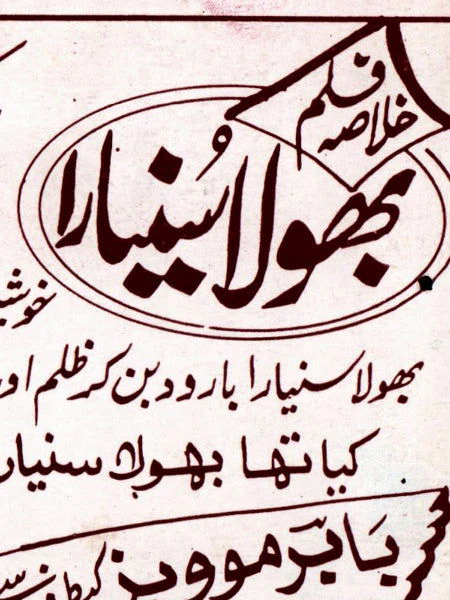 خلاصہ فلم
بھولا سُنیارا
خوشبو
بھولا سنیارا بارود بن کر ظلم اور
کیا تھا بھولا سنیارا
بابر موویز